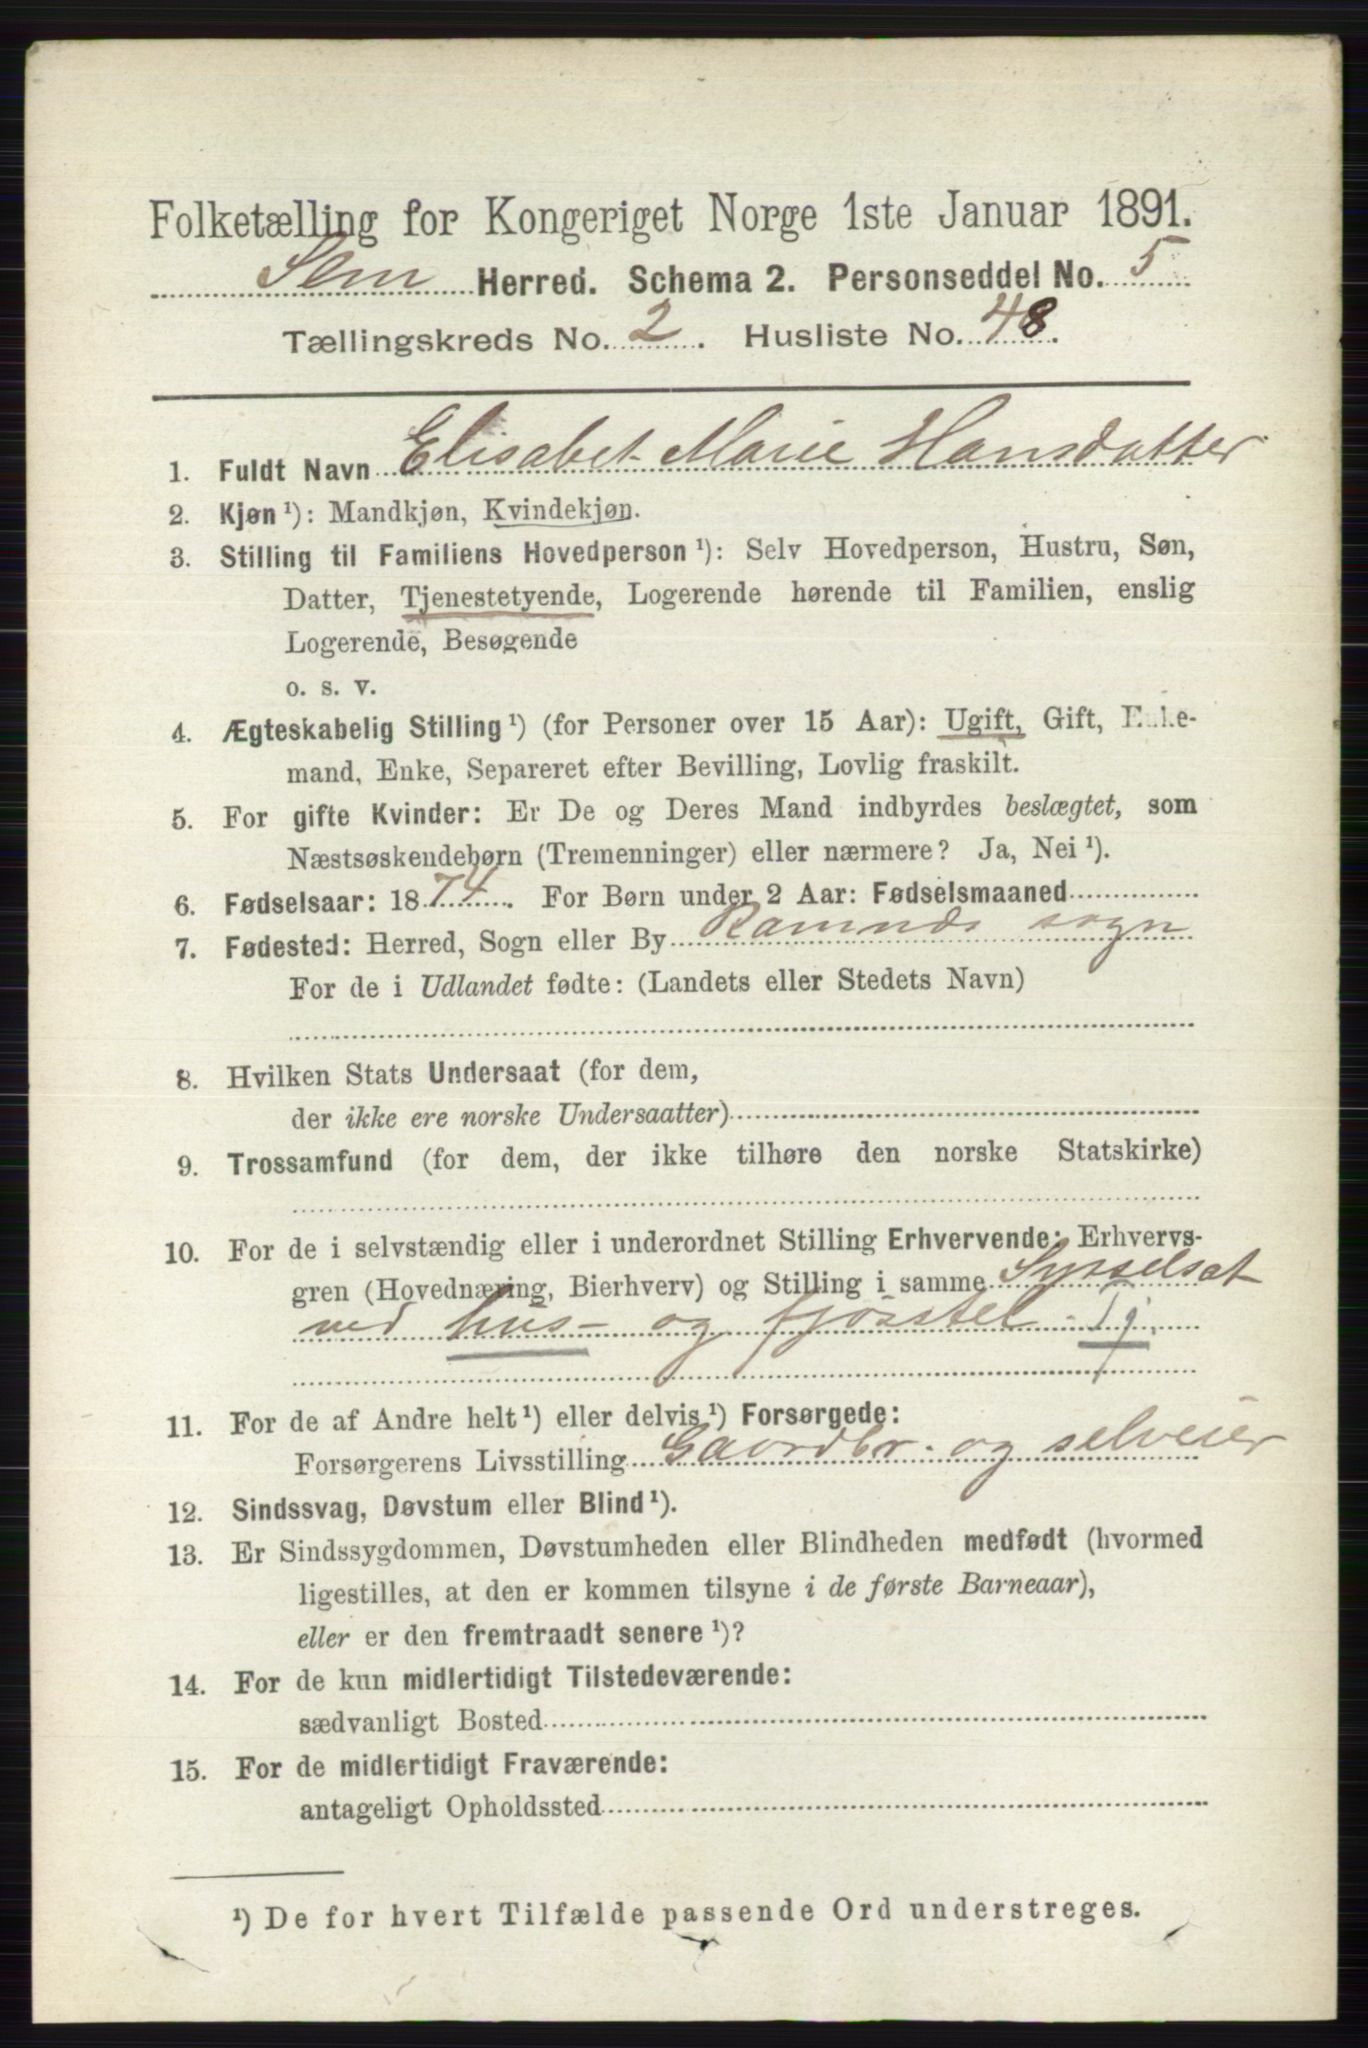 Folketælling for Kongeriget Norge 1ste Januar 1891.
Sem Herred. Schema 2. Personseddel No. 5
Tællingskreds No. 2. Husliste No. 48.
1. Fuldt Navn Elisabet Marie Hansdatter
2. Kjøn ¹): Mandkjøn, Kvindekjøn.
3. Stilling til Familiens Hovedperson ¹): Selv Hovedperson, Hustru, Søn,
Datter, Tjenestetyende, Logerende hørende til Familien, enslig
Logerende, Besøgende
o. s. v.
4. Ægteskabelig Stilling ¹) (for Personer over 15 Aar): Ugift, Gift, Enke-
mand, Enke, Separeret efter Bevilling, Lovlig fraskilt.
5. For gifte Kvinder: Er De og Deres Mand indbyrdes beslægtet, som
Næstsøskendebørn (Tremenninger) eller nærmere? Ja, Nei ¹).
6. Fødselsaar: 1874. For Børn under 2 Aar: Fødselsmaaned
7. Fødested: Herred, Sogn eller By Ramnds sogn
For de i Udlandet fødte: (Landets eller Stedets Navn)
8. Hvilken Stats Undersaat (for dem,
der ikke ere norske Undersaatter)
9. Trossamfund (for dem, der ikke tilhøre den norske Statskirke)
10. For de i selvstændig eller i underordnet Stilling Erhvervende: Erhvervs-
gren (Hovednæring, Bierhverv) og Stilling i samme Sysselsat
ved hus- og fjosstel. Tj.
11. For de af Andre helt ¹) eller delvis ¹) Forsørgede:
Forsørgerens Livsstilling Gaardbr. og selveier
12. Sindssvag, Døvstum eller Blind ¹).
13. Er Sindssygdommen, Døvstumheden eller Blindheden medfødt (hvormed
ligestilles, at den er kommen tilsyne i de første Barneaar),
eller er den fremtraadt senere ¹)?
14. For de kun midlertidigt Tilstedeværende:
sædvanligt Bosted
15. For de midlertidigt Fraværende:
antageligt Opholdssted
¹) De for hvert Tilfælde passende Ord understreges.